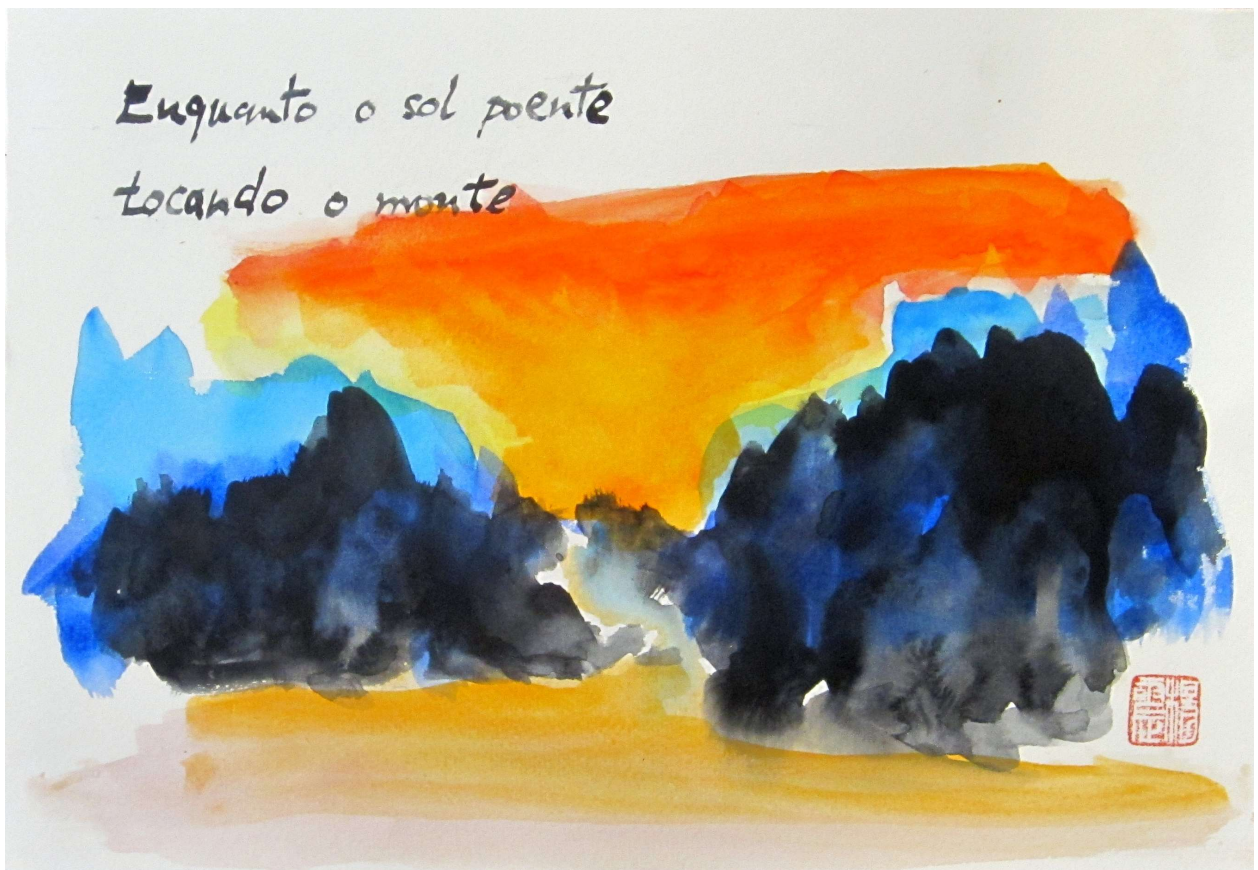 Enquanto o sol poente
tocando o monte